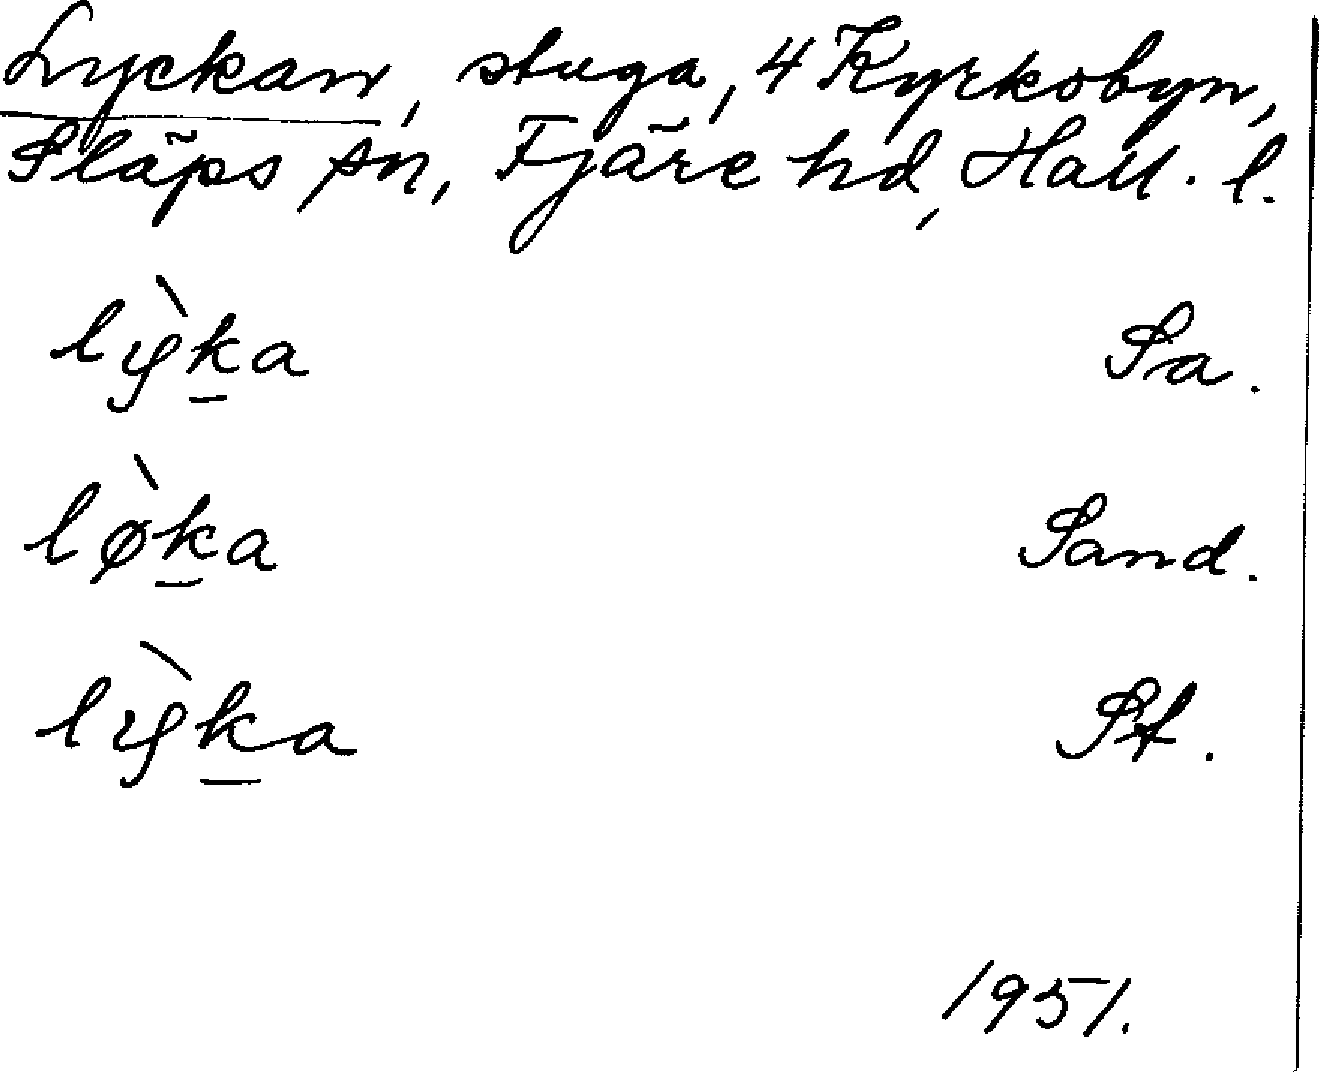 Lyckan, stuga, 4 Kyrkobyn,
Släps sn, Fjäre hd, Hall. l.
lỳka Sa.
lø̀ka Sand.
lỳka St.
1951.